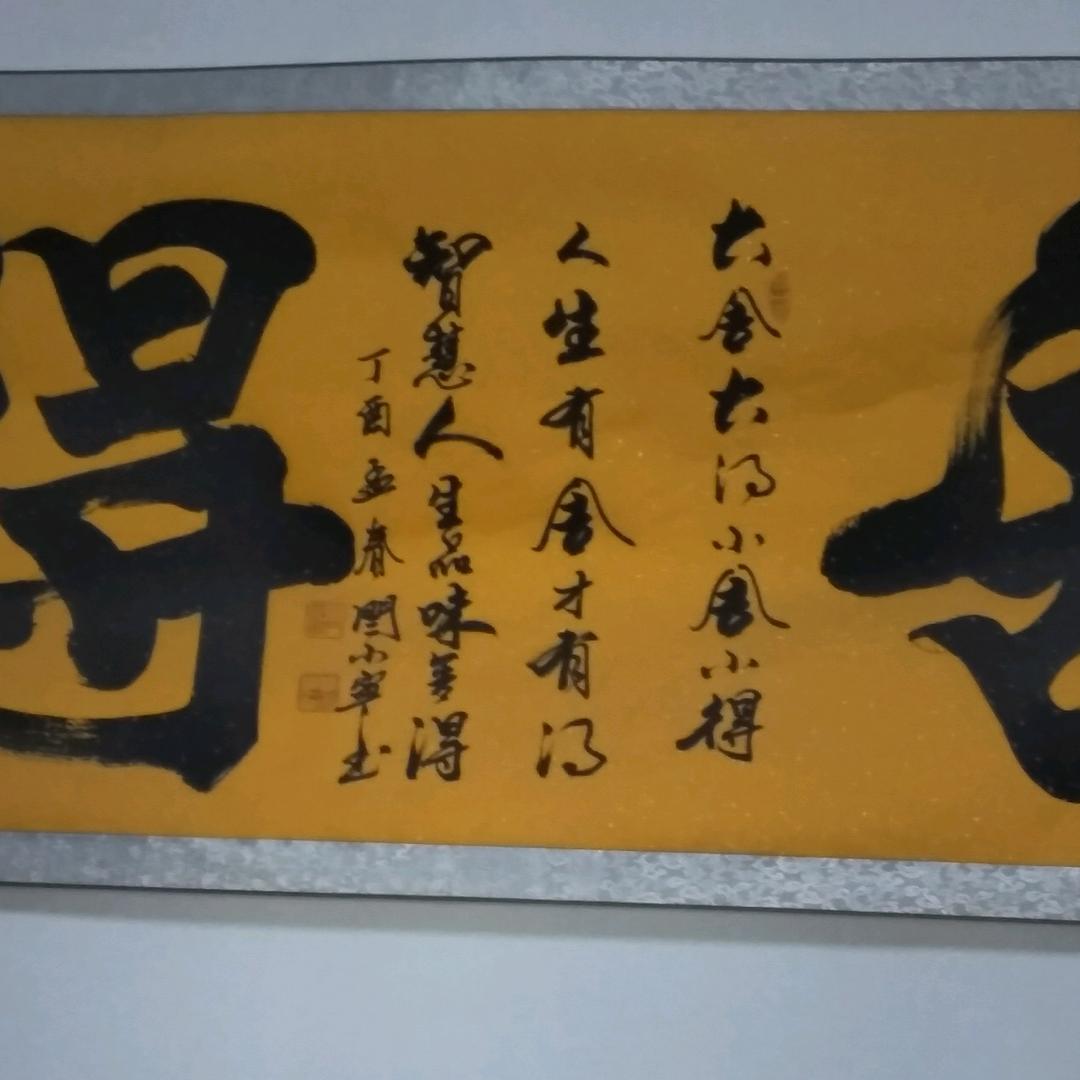 舍
大舍大得小舍小得
人生有舍才有得
智慧人生品味舍得
丁酉孟春閆小寧书
得